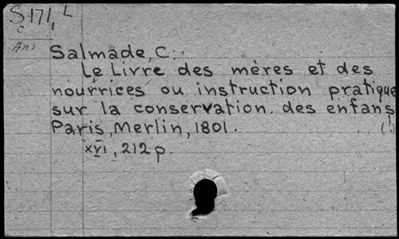 S171, L
c
Ans
Salmade, C.
Le Livre des mères et des
nourrices ou instruction pratique
sur la conservation des enfans
Paris, Merlin, 1801.
xvi, 212 p.